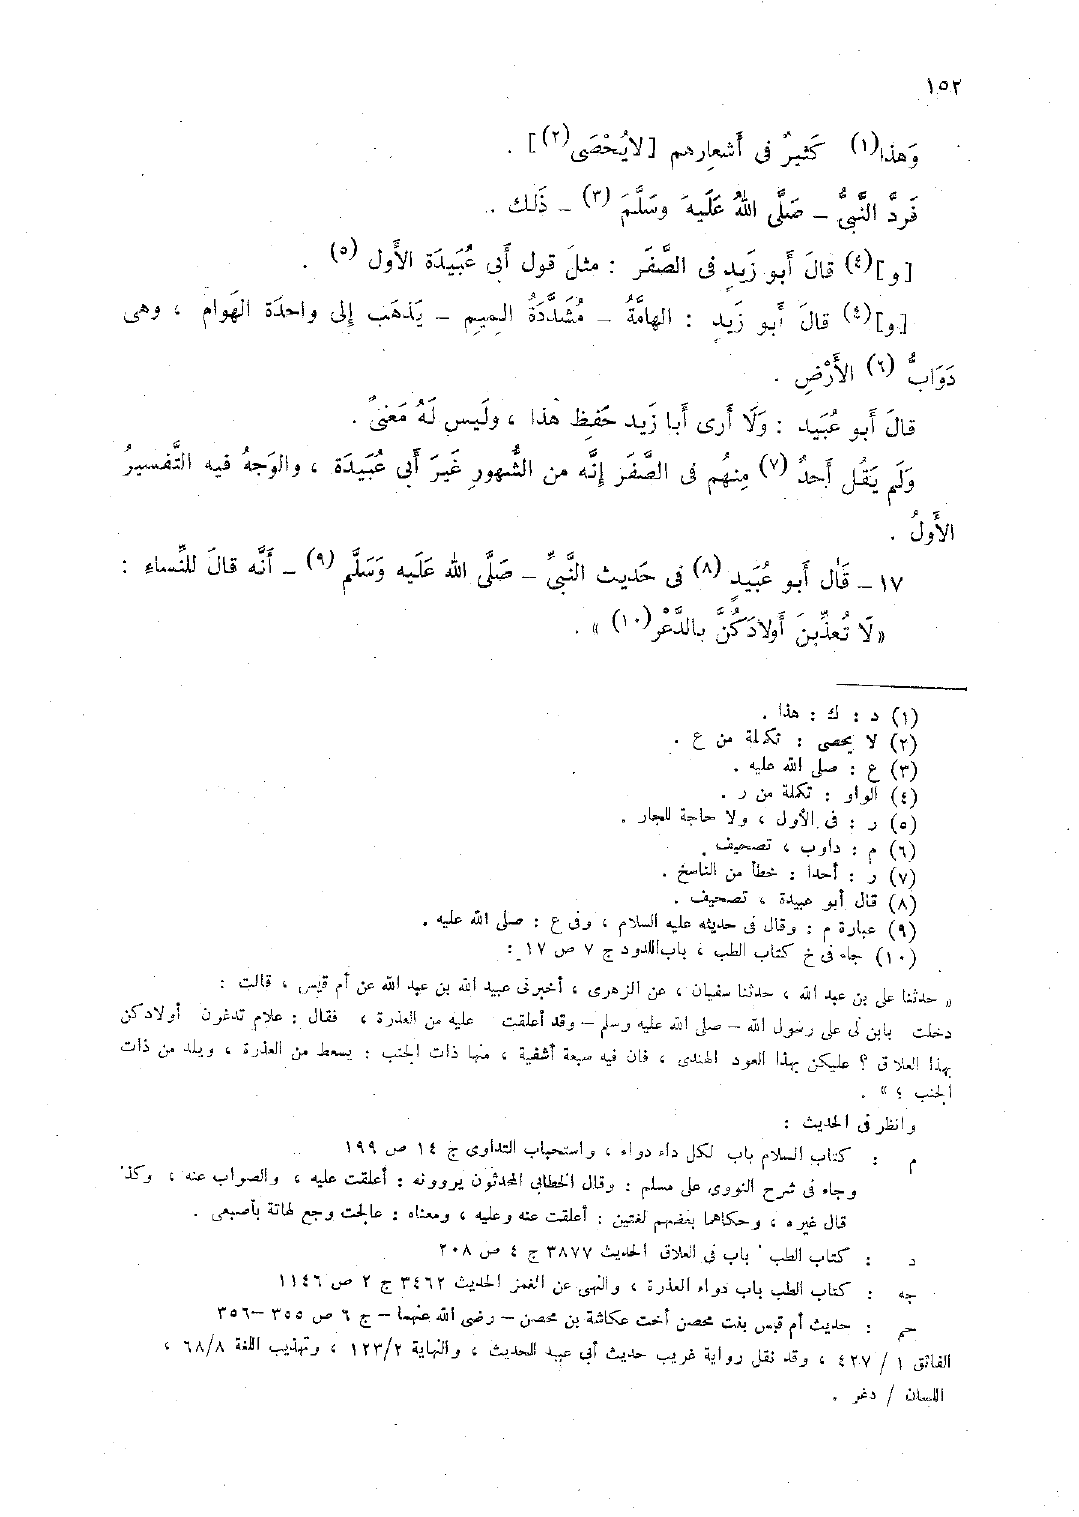 ١٥٢
وَهذا(١) كَثيرٌ فى أَشعارِهم [لايُحْصَى(٢)] .
فَردَّ النَّبىُّ – صَلَّى اللهُ عَلَيه وسَلَّمَ (٣) – ذَلك .
[و](٤) قالَ أَبو زَيدٍ فى الصَّفَر : مثلَ قول أَبى عُبَيدَة الأَول (٥) .
[و](٤) قالَ أَبو زَيدٍ : الهامَّةُ – مُشَدَّدَةُ الميمِ – يَذهَب إلى واحدَة الهَوام ، وهى
دَوَابُّ (٦) الأَرْضِ .
قالَ أَبو عُبَيد : وَلَا أَرى أَبا زَيد حَفِظ هذا ، ولَيس لَهُ مَعنىً .
وَلَم يَقُل أَحدٌ (٧) مِنهُم فى الصَّفَر إنَّه من الشُّهورِ غَيرَ أَبى عُبَيدَة ، والوَجهُ فيه التَّفسيرُ
الأَولُ .
١٧ – قَال أَبو عُبَيدٍ (٨) فى حَديث النَّبىِّ – صَلَّى الله عَلَيه وَسَلَّم (٩) – أَنَّه قالَ للنِّساء :
« لَا تُعذِّبنَ أَولادَكُنَّ بالدَّغْر(١٠) » .
(١) د : ك : هذا .
(٢) لا يحصى : تكملة من ع .
(٣) ع : صلى الله عليه .
(٤) الواو : تكملة من ر .
(٥) ر : فى الأول ، ولا حاجة للجار .
(٦) م : داوب ، تصحيف .
(٧) ر : أحدا : خطأ من الناسخ .
(٨) قال أبو عبيدة ، تصحيف .
(٩) عبارة م : وقال فى حديثه عليه السلام ، وفى ع : صلى الله عليه .
(١٠) جاء فى خ كتاب الطب ، باب اللدود ج ٧ ص ١٧ :
« حدثنا على بن عبد الله ، حدثنا سفيان ، عن الزهرى ، أخبرنى عبيد الله بن عبد الله عن أم قيس ، قالت :
دخلت بابن لى على رسول الله – صلى الله عليه وسلم – وقد أعلقت عليه من العذرة ، فقال : علام تدغرن أولادكن
بهذا العلاق ؟ عليكن بهذا العود الهندى ، فان فيه سبعة أشفية ، منها ذات الجنب : يسعط من العذرة ، ويلد من ذات
الجنب ؛ » .
وانظر فى الحديث :
م : كتاب السلام باب لكل داء دواء ، واستحباب التداوى ج ١٤ ص ١٩٩
وجاء فى شرح النووى على مسلم : وقال الخطابى المحدثون يروونه : أعلقت عليه ، والصواب عنه ، وكذا
قال غيره ، وحكاهما بعضهم لغتين : أعلقت عنه وعليه ، ومعناه : عالجت وجع لهاتة بأصبعى .
د : كتاب الطب باب فى العلاق الحديث ٣٨٧٧ ج ٤ ص ٢٠٨
جه : كتاب الطب باب دواء العذرة ، والنهى عن الغمز الحديث ٣٤٦٢ ج ٢ ص ١١٤٦
حم : حديث أم قيس بنت محصن أخت عكاشة بن محصن – رضى الله عنهما – ج ٦ ص ٣٥٥ –٣٥٦
الفائق ١ / ٤٢٧ ، وقد نقل رواية غريب حديث أبى عبيد للحديث ، والنهاية ١٢٣/٢ ، وتهذيب اللغة ٦٨/٨ ،
اللسان / دغر .